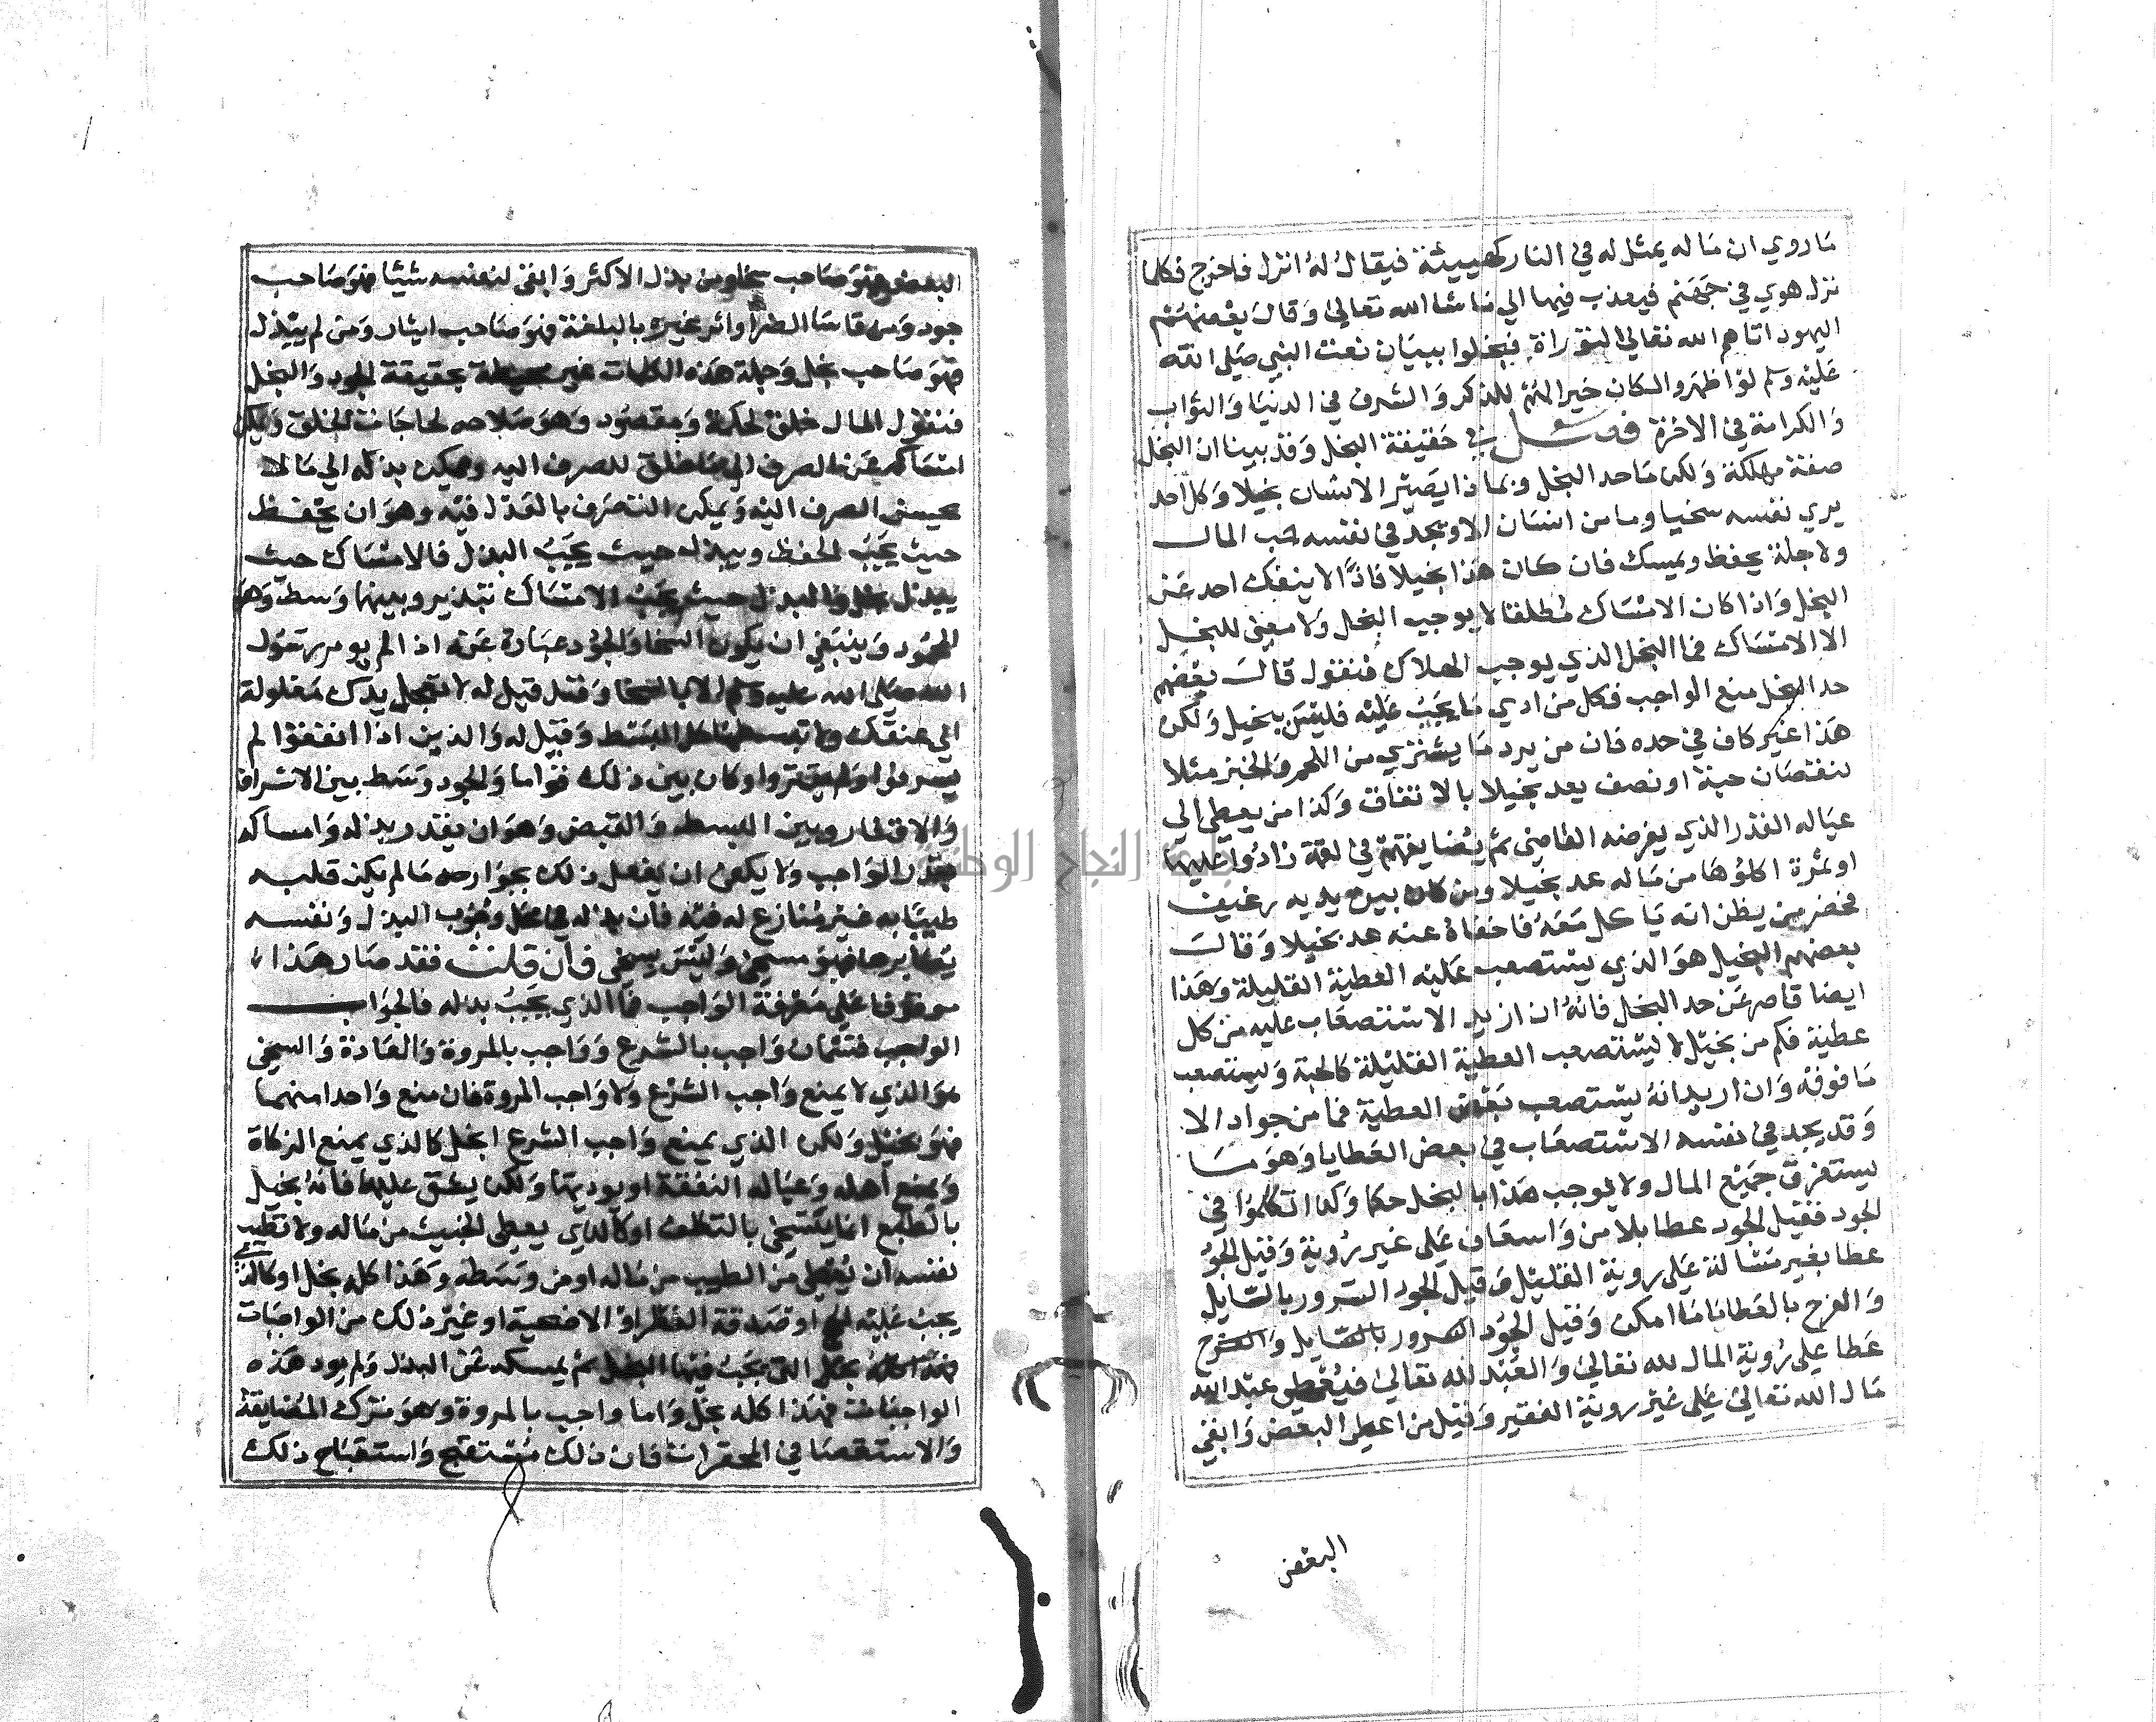 ما روي ان ماله يمثل له في النار كهيئة فيقال له انزل فاخرج فكلما
نزل هوي في جهنم فيعذب فيها الي ما شا الله تعالي وقال بعضهم هم
اليهود اتاهم الله تعالي التوراة فبخلوا ببيان نعت النبي صلي الله
عليه وسلم لو اظهروا لكان خير المنهم للذكر والشرف في الدنيا والثواب
والكرامة في الاخرة فصل في حقيقة البخل وقد بينا ان البخل
صفة مهلكة ولكن ما حد البخل وبماذا يصير الانسان بخيلا وكل احد
يري نفسه سخيا وما من انسان الا ويجد في نفسه حب المال
ولاجلة يحفظ ويمسك فان كان هذا بخيلا فاذا لا ينفك احد عن
البخل واذا كان الامساك مطلقا لا يوجب البخل ولا معني للبخل
الا الامساك فما البخل الذي يوجب الهلاك فنقول قال بعضهم
حد البخل منع الواجب فكل من ادي ما يجب عليه فليس بخيل ولكن
هذا غير كاف في حده فان من يرد ما يشتري من اللحم والخبز مثلا
لنقصان حبة او نصف يعد بخيلا بالاتفاق وكذا من يعطي الي
عياله القدر الذي يفرضه القاضي ثم يضايقهم في لقمة زادوا عليها
او تمرة اكلوها من ماله عد بخيلا ومن كان بين يديه رغيف
فحضر من يظن انه ياكل معه فاخفاه عنه عد بخيلا وقال
بعضهم البخيل هو الذي يستصعب عليه العطية القليلة وهذا
ايضا قاصر عن حد البخل فانه ان اريد الاستصعاب عليه من كل
عطية فكم من بخيل لا يستصعب العطية القليلة كالحبة ويستصعب
ما فوقه وان اريد انه يستصعب بعض العطية فما من جواد الا
وقد يجد في نفسه الاستصعاب في بعض العطايا وهو ما
يستغرق جميع المال ولا يوجب هذا بالبخل حكما وكذا تكلموا في
الجود فقيل الجود عطا بلا من واسعاف علي غير روية وقيل الجود
عطا بغير مسالة علي روية القليل وقيل الجود السرور بالسايل
والفرح بالعطا ما امكن وقيل الجود السرور بالسايل والفرح
عطا علي روية المال لله تعالي والعبد لله تعالي فيعطي عبد الله
مال الله تعالي علي غير روية الفقير وقيل من اعطي البعض وابقي
البعض
البعض فهو صاحب سخا ومن بذل الاكثر وابقي لنفسه شيئا فهو صاحب
جود ومن قاسا الضر واثر غيره بالبلغة فهو صاحب ايثار ومن لم يبذل
فهو صاحب بخل وجملة هذه الكلمات غير محيطة بحقيقة الجود والبخل
فنقول المال خلق لحكمة ومقصود وهو صلاحه لحاجات الخلق ويمكن
امساكه عن الصرف الي ما خلق للصرف اليه ويمكن بذله الي ما لا
يحسن الصرف اليه ويمكن التصرف بالعدل فيه وهو ان يحفظ
حيث يجب الحفظ ويبذله حيث يجب البذل فالامساك حيث
يبذل بخل والبذل حيث يجب الامساك تبذير وبينهما وسط وهو
المحمود وينبغي ان يكون السخا والجود عبارة عنه اذ الم يومر رسول
الله صلي الله عليه وسلم الا بالسخا وقد قيل له لا تجعل يدك مغلولة
الي عنقك ولا تبسطها كل البسط وقيل له والذين اذا انفقوا لم
يسرفوا ولم يقتروا وكان بين ذلك قواما والجود وسط بين الاسراف
والاقتار وبين البسط والقبض وهو ان يقدر بذله وامساكه
بقدر الواجب ولا يكفي ان يفعل ذلك بجوارحه ما لم يكن قلبه
طيبا به غير منازع له فيه فان بذله في محل وجوب البذل ونفسه
يصابرها فهو مسخي وليس بسخي فان قلت فقد صار هذا
موقوفا علي معرفة الواجب فما الذي يجب بذله فالجواب
الواجب قسمان واجب بالشرع وواجب بالمروة والعادة والسخي
هو الذي لا يمنع واجب الشرع ولا واجب المروة فان منع واحدا منهما
فهو بخيل ولكن الذي يمنع واجب الشرع ابخل كالذي يمنع الزكاة
ويمنع اهله وعياله النفقة او يوديها ولكن يشق عليه فانه بخيل
بالطبع انما يتسخي بالتكلف او كالذي يعطي الخبيث من ماله ولا تطيب
نفسه ان يعطي من الطيب من ماله او من وسطه وهذا كله بخل او كالذي
يجب عليه الحج او صدقة الفطر او الاضحية او غير ذلك من الواجبات
فهذا كله بخل التي يجب فيها البخل ثم يمسكه عن البذل ولم يود هذه
الواجبات فهذا كله بخل واما واجب بالمروة وهو ترك المضايقة
والاستقصا في المحقرات فان ذلك مستقبح واستقباح ذلك